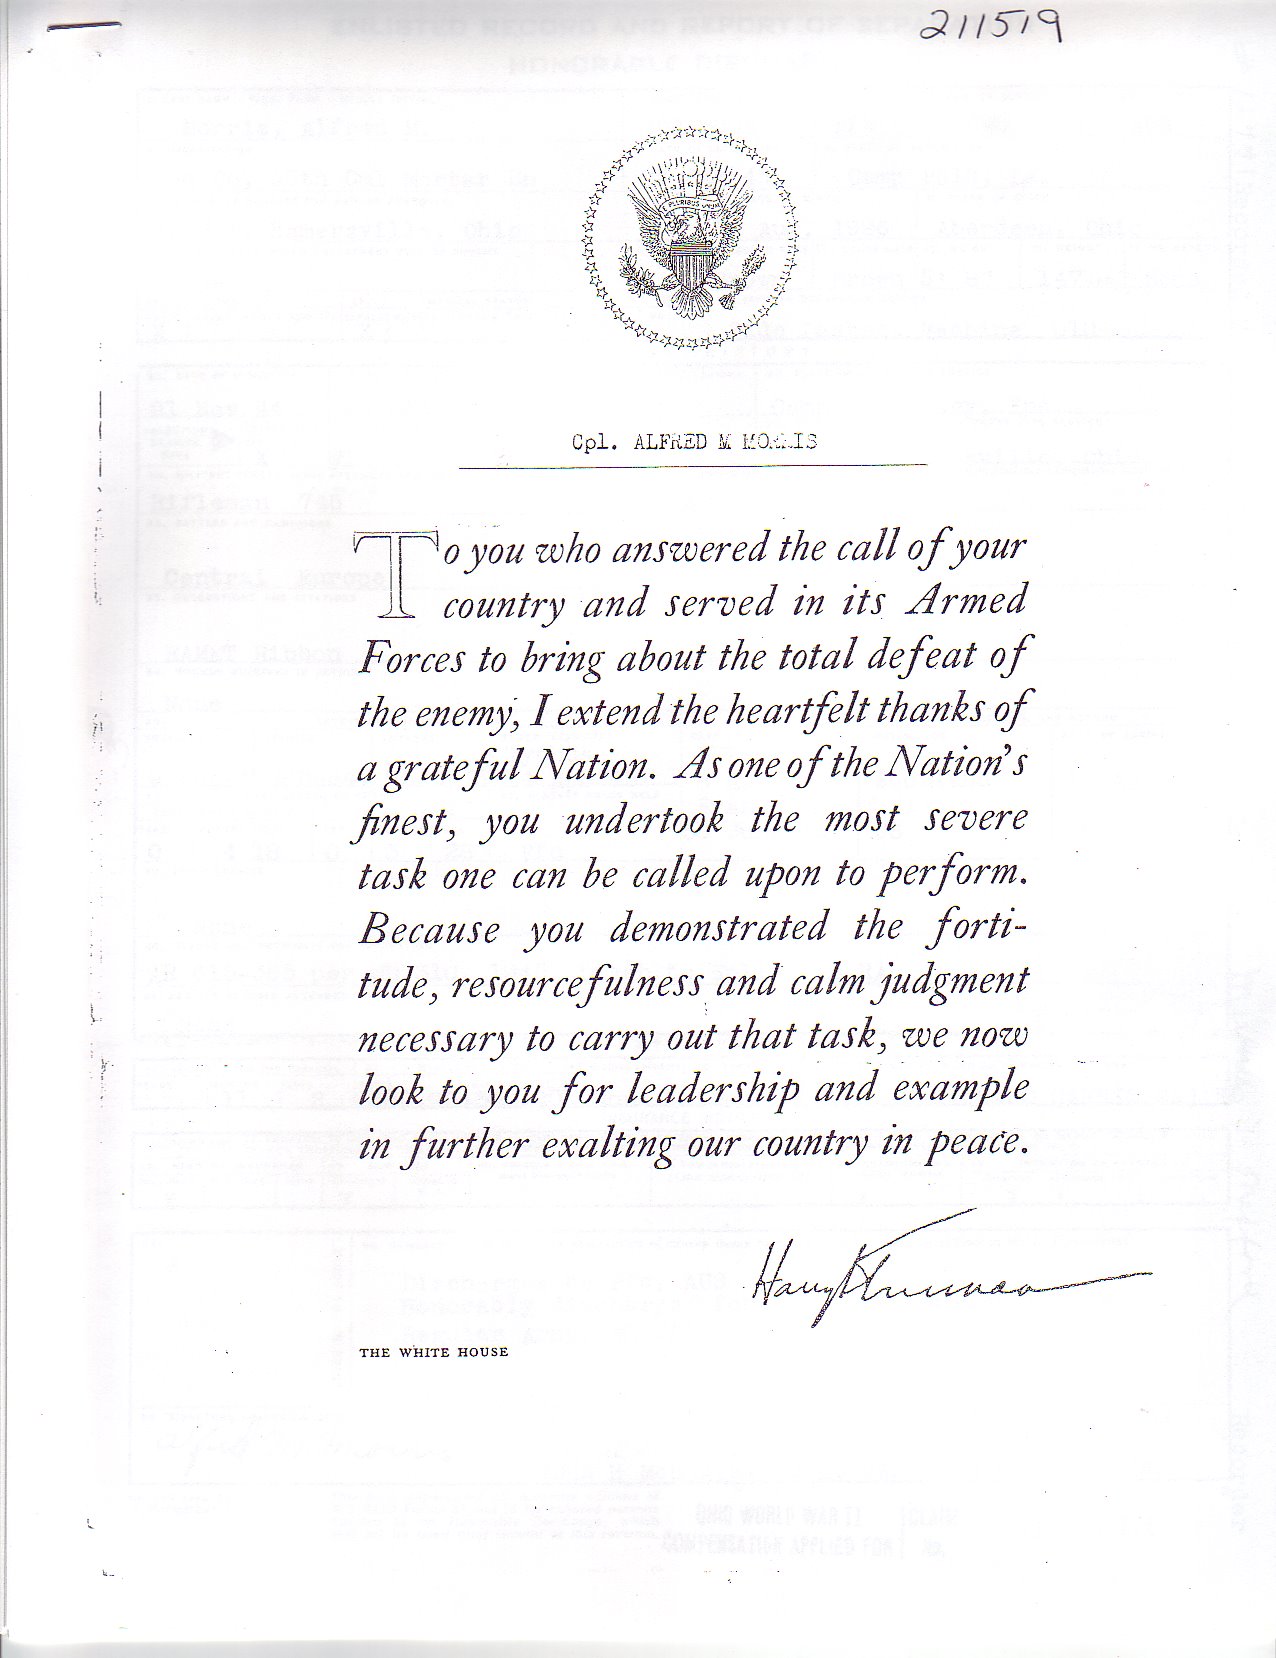 211519
PLURIBUS UNUM
Cpl. ALFRED M MORRIS
To you who answered the call of your
country and served in its Armed
Forces to bring about the total defeat of
the enemy, I extend the heartfelt thanks of
a grateful Nation. As one of the Nation's
finest, you undertook the most severe
task one can be called upon to perform.
Because you demonstrated the forti-
tude, resourcefulness and calm judgment
necessary to carry out that task, we now
look to you for leadership and example
in further exalting our country in peace.
Harry S Truman
THE WHITE HOUSE